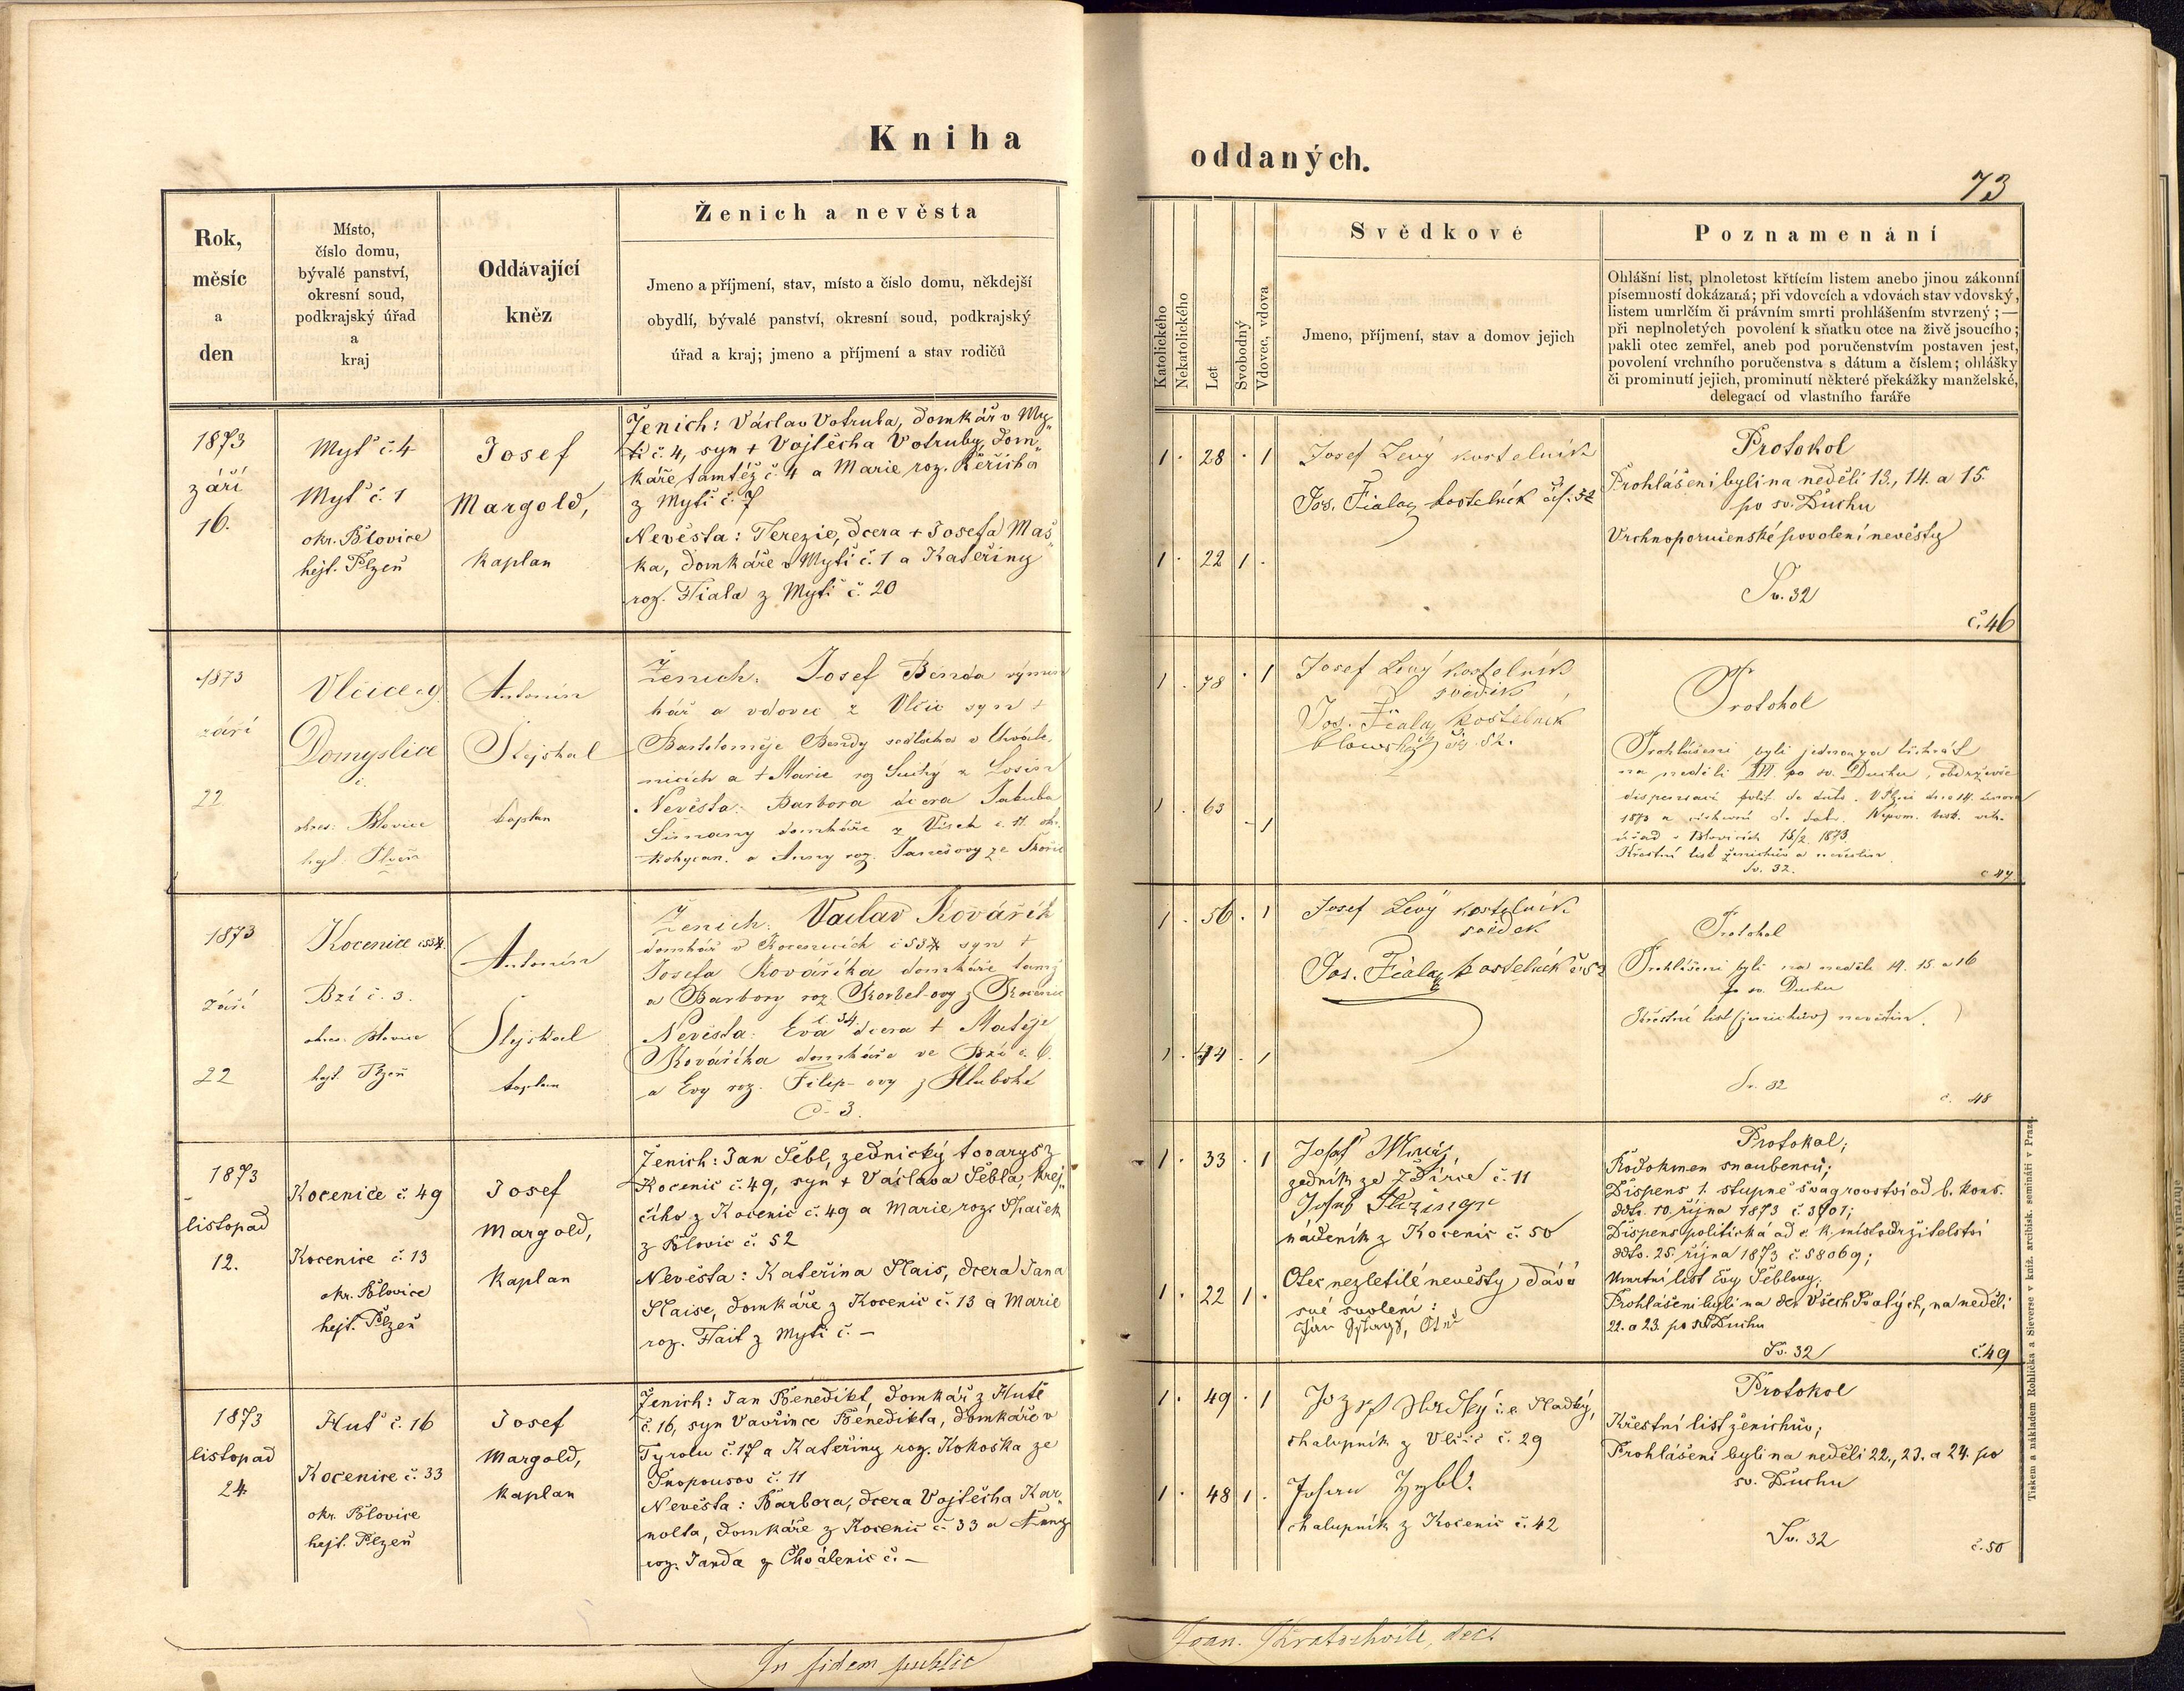 Kniha
oddaných.
73
Rok,
měsíc
a
den
Místo,
číslo domu,
bývalé panství,
okresní soud,
podkrajský úřad
a
kraj
Oddávající
kněz
Ženich a nevěsta
Jmeno a příjmení, stav, místo a číslo domu, někdejší
obydlí, bývalé panství, okresní soud, podkrajský
úřad a kraj; jmeno a příjmení a stav rodičů
Katolického
Nekatolického
Let
Svobodný
Vdovec, vdova
Svědkové
Jmeno, příjmení, stav a domov jejich
Poznamenání
Ohlášní list, plnoletost křtícím listem anebo jinou zákonní
písemností dokázaná; při vdovcích a vdovách stav vdovský,
listem umrlčím či právním smrti prohlášením stvrzený; —
při neplnoletých povolení k sňatku otce na živě jsoucího;
pakli otec zemřel, aneb pod poručenstvím postaven jest,
povolení vrchního poručenstva s dátum a číslem; ohlášky
či prominutí jejich, prominutí některé překážky manželské,
delegací od vlastního faráře
1873
září
16.
Myť č. 4
Myť č. 1
okr. Blovice
hejt. Plzeň
Josef
Margold,
kaplan
Ženich: Václav Votruba, domkář v My„
ti č. 4, syn + Vojtěcha Votruby, dom„
káře tamtéž č. 4 a Marie roz. Řeřicha
z Myti č. 7
Nevěsta: Terezie, dcera + Josefa Maš„
ka, domkáře v Myti č. 1 a Kateřiny
roz. Fiala z Myti č. 20
1 . 28 . 1
1 . 22 1 .
Josef Levý kostelník
Jos. Fiala, kostelník čís. 52
Protokol
Prohlášeni byli na neděli 13., 14. a 15.
po sv. Duchu
Vrchnoporučenské povolení nevěsty
Sv. 32
č. 46
1873
září
22
Vlčice 9
Domyslice
č.
okres: Blovice
hejt. Plzeň
Antonín
Stejskal
kaplan
Ženich: Josef Benda výmin
kář a vdovec z Vlčic syn +
Bartoloměje Bendy sedláka v Chvále„
nicích a + Marie roz Suchý z Losin
Nevěsta: Barbora dcera Jakuba
Šimany domkáře z Vísek č. 11. okr.
Rokycan. a Anny roz. Janešovy ze Skořic
1 . 78 . 1
1 . 63 - 1
Josef Levý kostelník
svědek,
Jos. Fiala, kostelník
blowský čís. 52.
Protokol
Prohlášeni byli jednou za třikrát
na neděli XVI po sv. Duchu, obdrževše
1873
úřad v Blovicích 15/2 1873.
Křestní list ženichův a nevěstin
Sv. 32.
č. 47.
1873
Září
22
Kocenice č 54.
Bzí č. 3.
okres. Blovice
hejt. Plzeň
Antonín
Stejskal
kaplan
Ženich: Václav Kovářík
domkář v Kocenicích č 54 syn +
Josefa Kováříka domkáře tamž
a Barbory roz. Korbel-ovy z Kocenic
č 34.
Nevěsta: Eva dcera + Matěje
Kováříka domkáře ve Bzí č. 6.
a Evy roz. Filip-ovy z Hluboké
č. 3.
1 . 56 . 1
1 . 44 . 1
Josef Levý kostelník
svědek
Jos. Fiala, kostelník č 52
Protokol
Prohlášeni byli na neděli 14. 15. a 16
po sv. Duchu
Křestní list (ženichův) nevěstin.
Sv. 32
č. 48
1873
listopad
12.
Kocenice č. 49
Kocenice č. 13
okr. Blovice
hejt. Plzeň
Josef
Margold,
kaplan
Ženich: Jan Šebl, zednický tovaryš z
Kocenic č. 49, syn + Václava Šebla, krej„
čího z Kocenic č. 49 a Marie roz. Špaček
z Blovic č. 52
Nevěsta: Kateřina Slais, dcera Jana
Slaise, domkáře z Kocenic č. 13 a Marie
roz. Hait z Myti č. —
1 . 33 . 1
1 . 22 1 .
zedník ze Ždírce č. 11
nádeník z Kocenic č. 50
Otec nezletilé nevěsty dává
své svolení:
Protokol;
Rodokmen snoubenců;
Dispens 1. stupně švagrovství od b. kons.
ddto. 10. října 1873 č. 3701;
Dispens politická od c. k. místodržitelství
ddto. 25. října 1873 č. 58069;
Úmrtní list Evy Šeblovy;
Prohlášeni byli na den Všech Svatých, na neděli
22. a 23. po sv. Duchu
Sv. 32
č. 49
1873
listopad
24.
Huť č. 16
Kocenice č. 33
okr. Blovice
hejt. Plzeň
Josef
Margold,
kaplan
Ženich: Jan Benedikt, domkář z Hutě
č. 16, syn Vavřince Benedikta, domkáře v
Tyrolu č. 17 a Kateřiny roz. Kokoška ze
Snopousov č. 11
Nevěsta: Barbora, dcera Vojtěcha Kar„
nolta, domkáře z Kocenic č. 33 a Anny
roz. Janda z Chválenic č. —
1 . 49 . 1
1 . 48 1 .
Sladký,
chalupník z Vlčic č. 29
chalupník z Kocenic č. 42
Protokol
Křestní list ženichův;
Prohlášeni byli na neděli 22., 23. a 24. po
sv. Duchu
Sv. 32
č. 50
Tiskem a nákladem Rohlíčka a Sieverse v kníž. arcibisk. semináři v Praze.
In fidem public
Joan. Kratochvíle, dec.